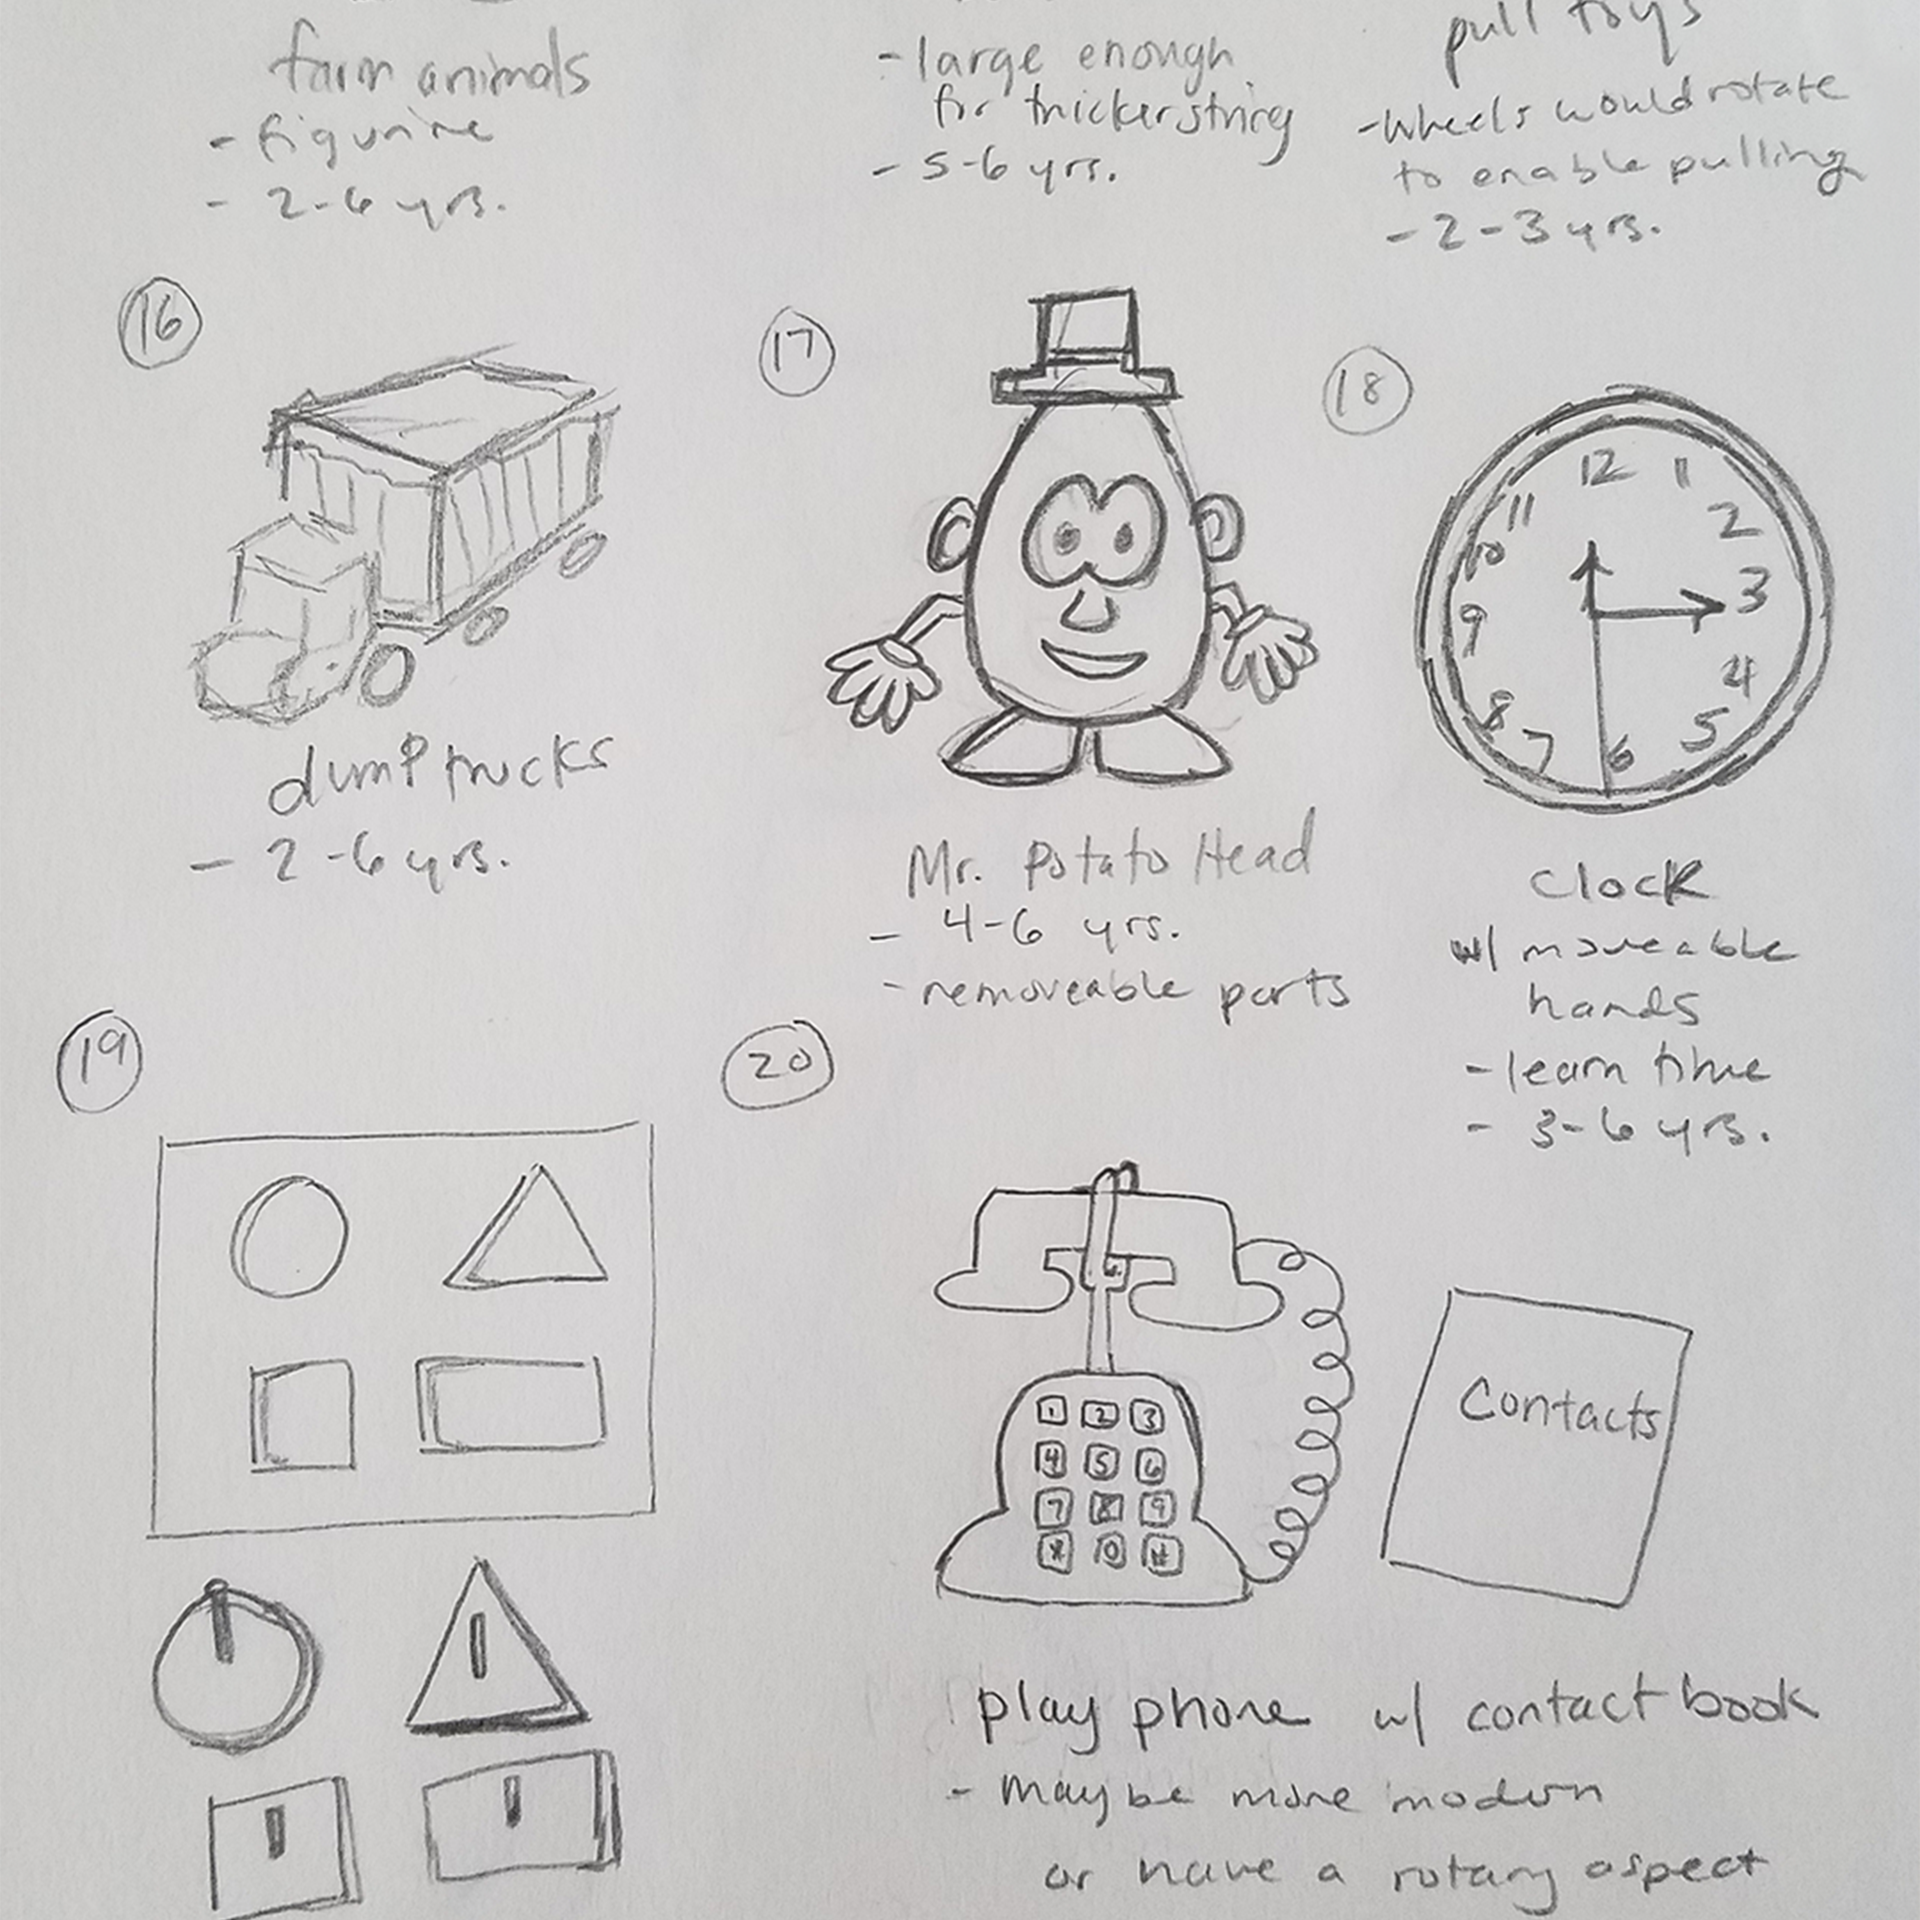 farm animals
- figurine
- 2-6 yrs.
- large enough
for thicker string
- 5-6 yrs.
pull toys
- wheels would rotate
to enable pulling
- 2-3 yrs.
16
dump trucks
- 2-6 yrs.
17
Mr. Potato Head
- 4-6 yrs.
- removeable parts
18
12
1
2
3
4
5
6
7
8
9
10
11
clock
w/ moveable
hands
- learn time
- 3-6 yrs.
19
20
1 2 3
4 5 6
7 8 9
* 0 #
Contacts
play phone w/ contact book
- maybe more modern
or have a rotary aspect